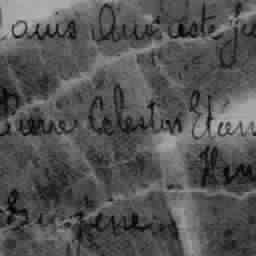 Louis Auguste
Pierre Célestin Etien
Hen
Eugène